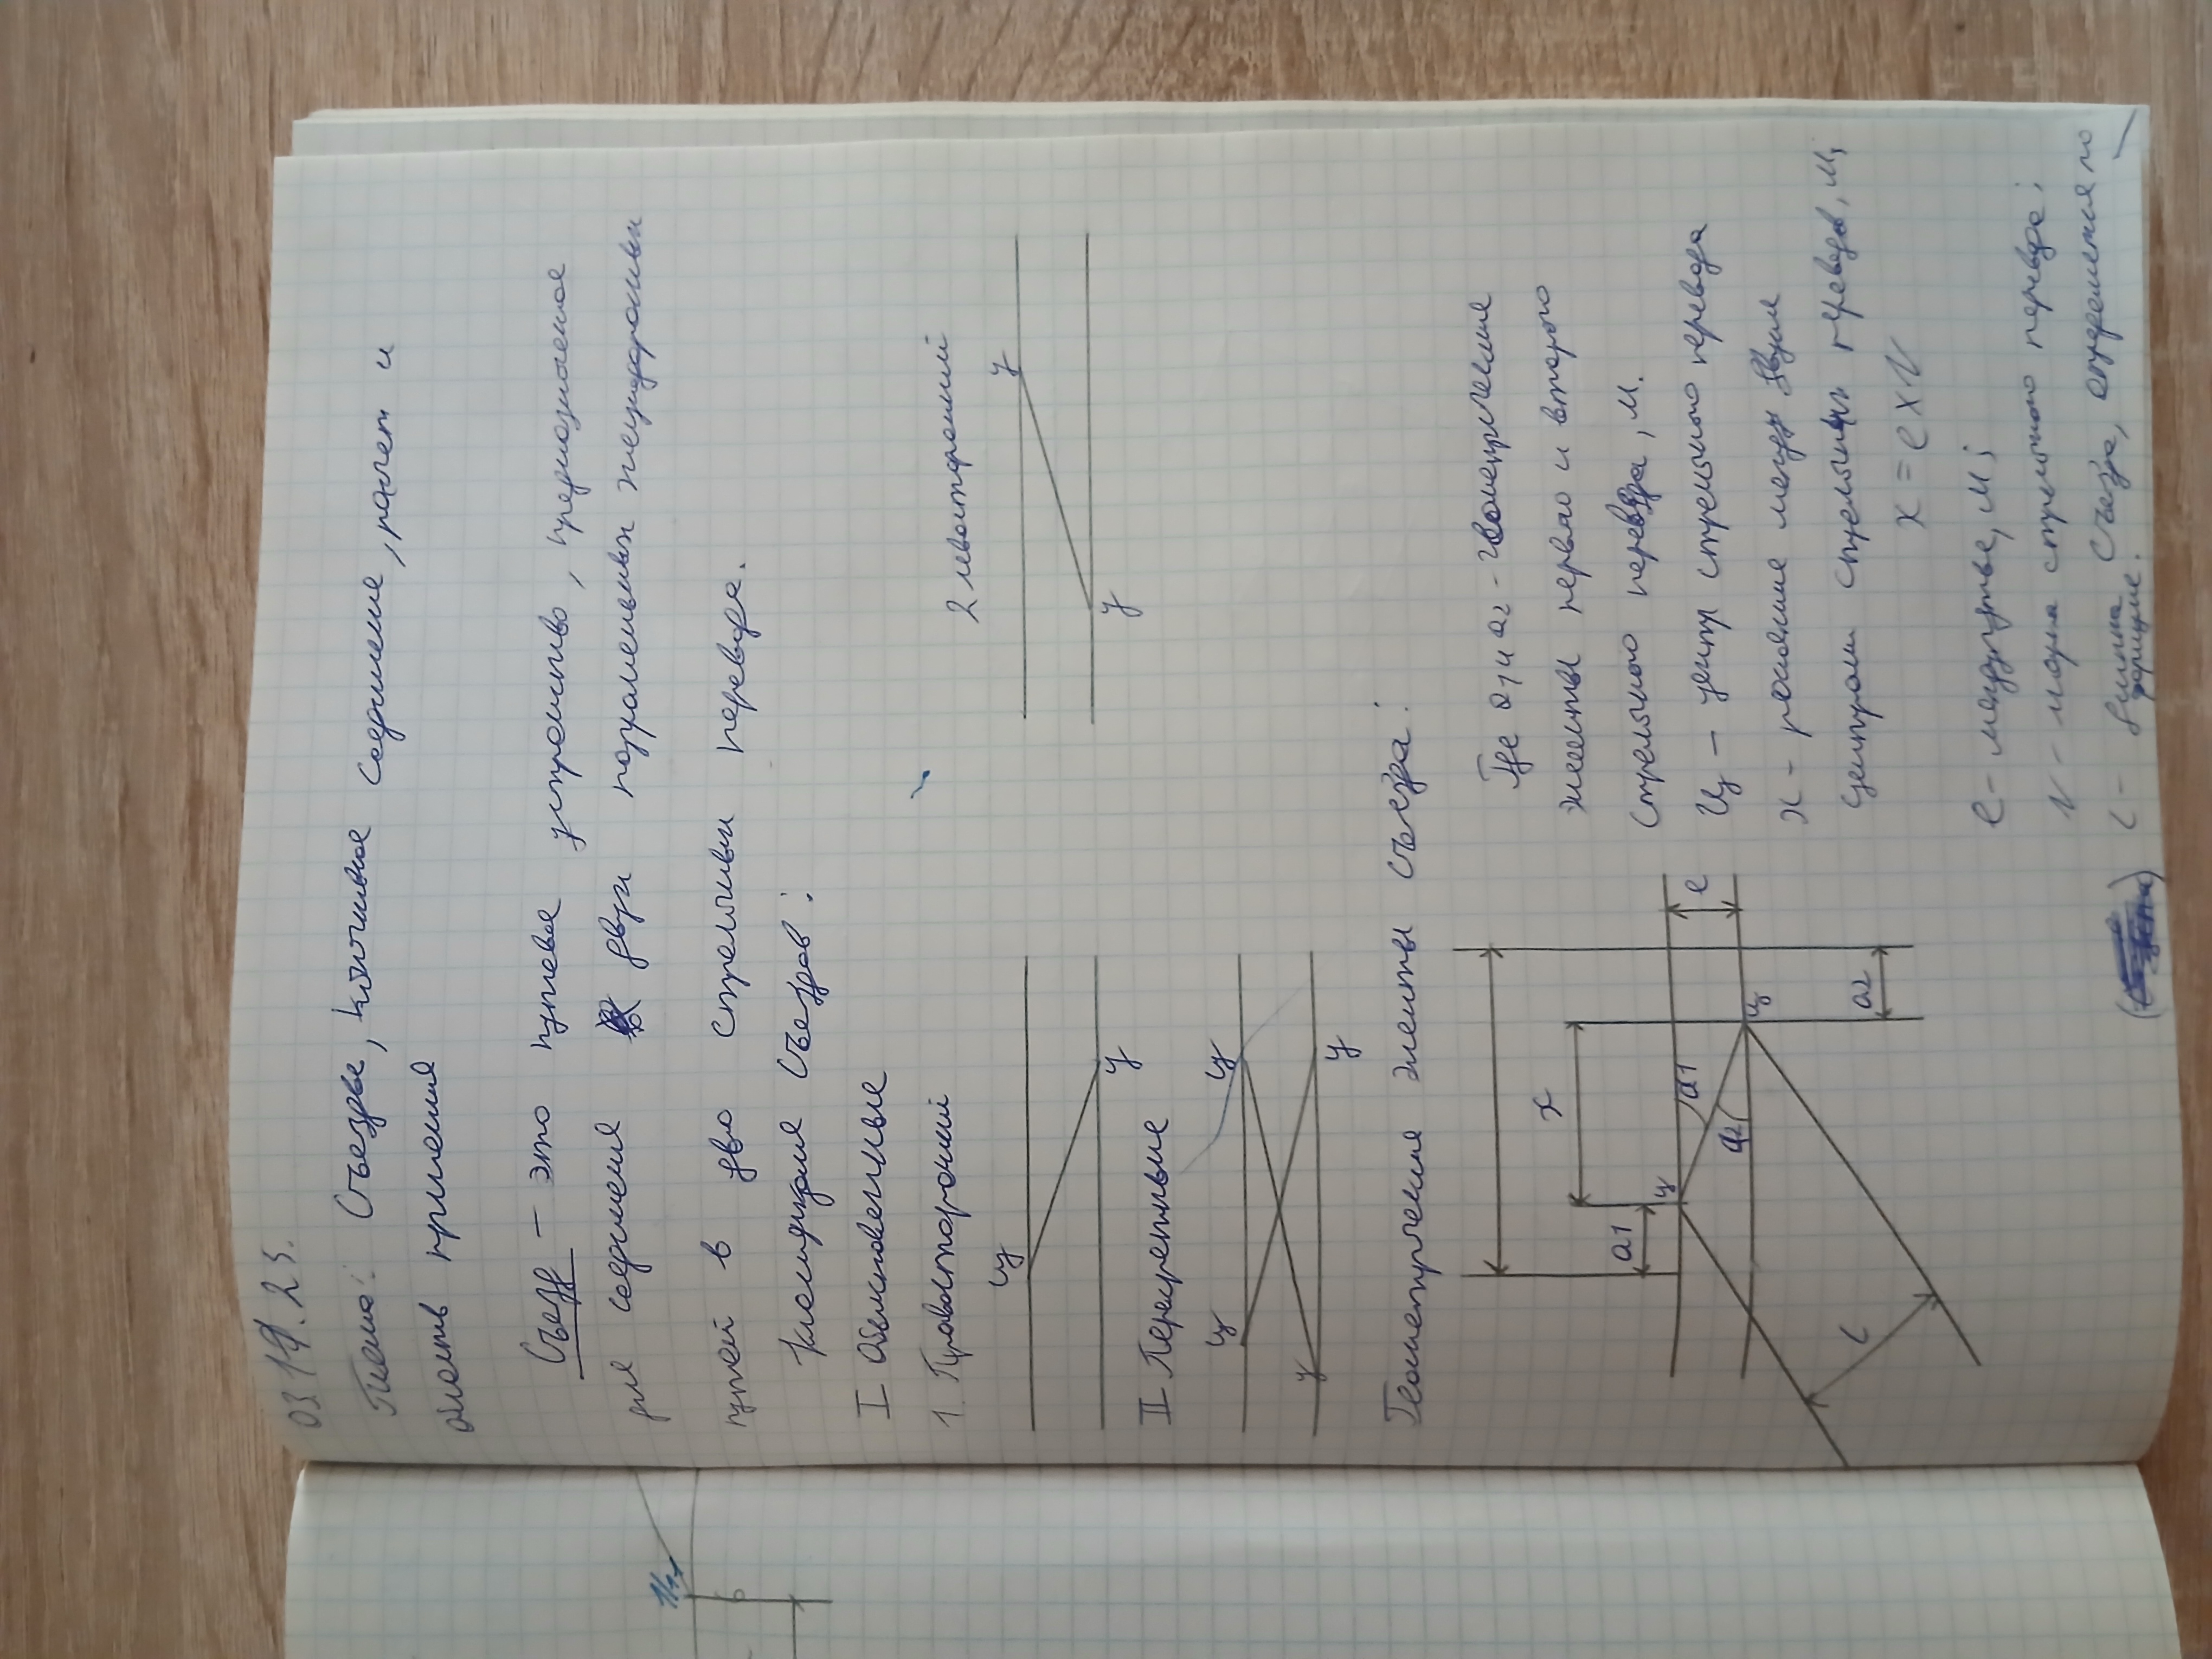 Тема: Съезды, конечное соединение, расчет и
область применения
Съезд – это путевое устройство, предназначенное
для соединения двух параллельных
путей в два стрелочных перевода.
Классификация съездов:
I Обыкновенные
1. Правосторонний
2 левосторонний
ц
ц
ц
ц
II Перекрестные
ц
ц
ц
ц
Геометрические элементы съезда:
x
a1
ц
a1
a2
ц
a2
e
L
Где a1 и a2 - геометрические
элементы первого и второго
стрелочного перевода, м.
Ц – центр стрелочного перевода
x - расстояние между двумя
центрами стрелочных переводов, м;
x = e x N
e – междупутье, м;
N – марка стрелочного перевода;
L – длина съезда, определяется по
формуле.